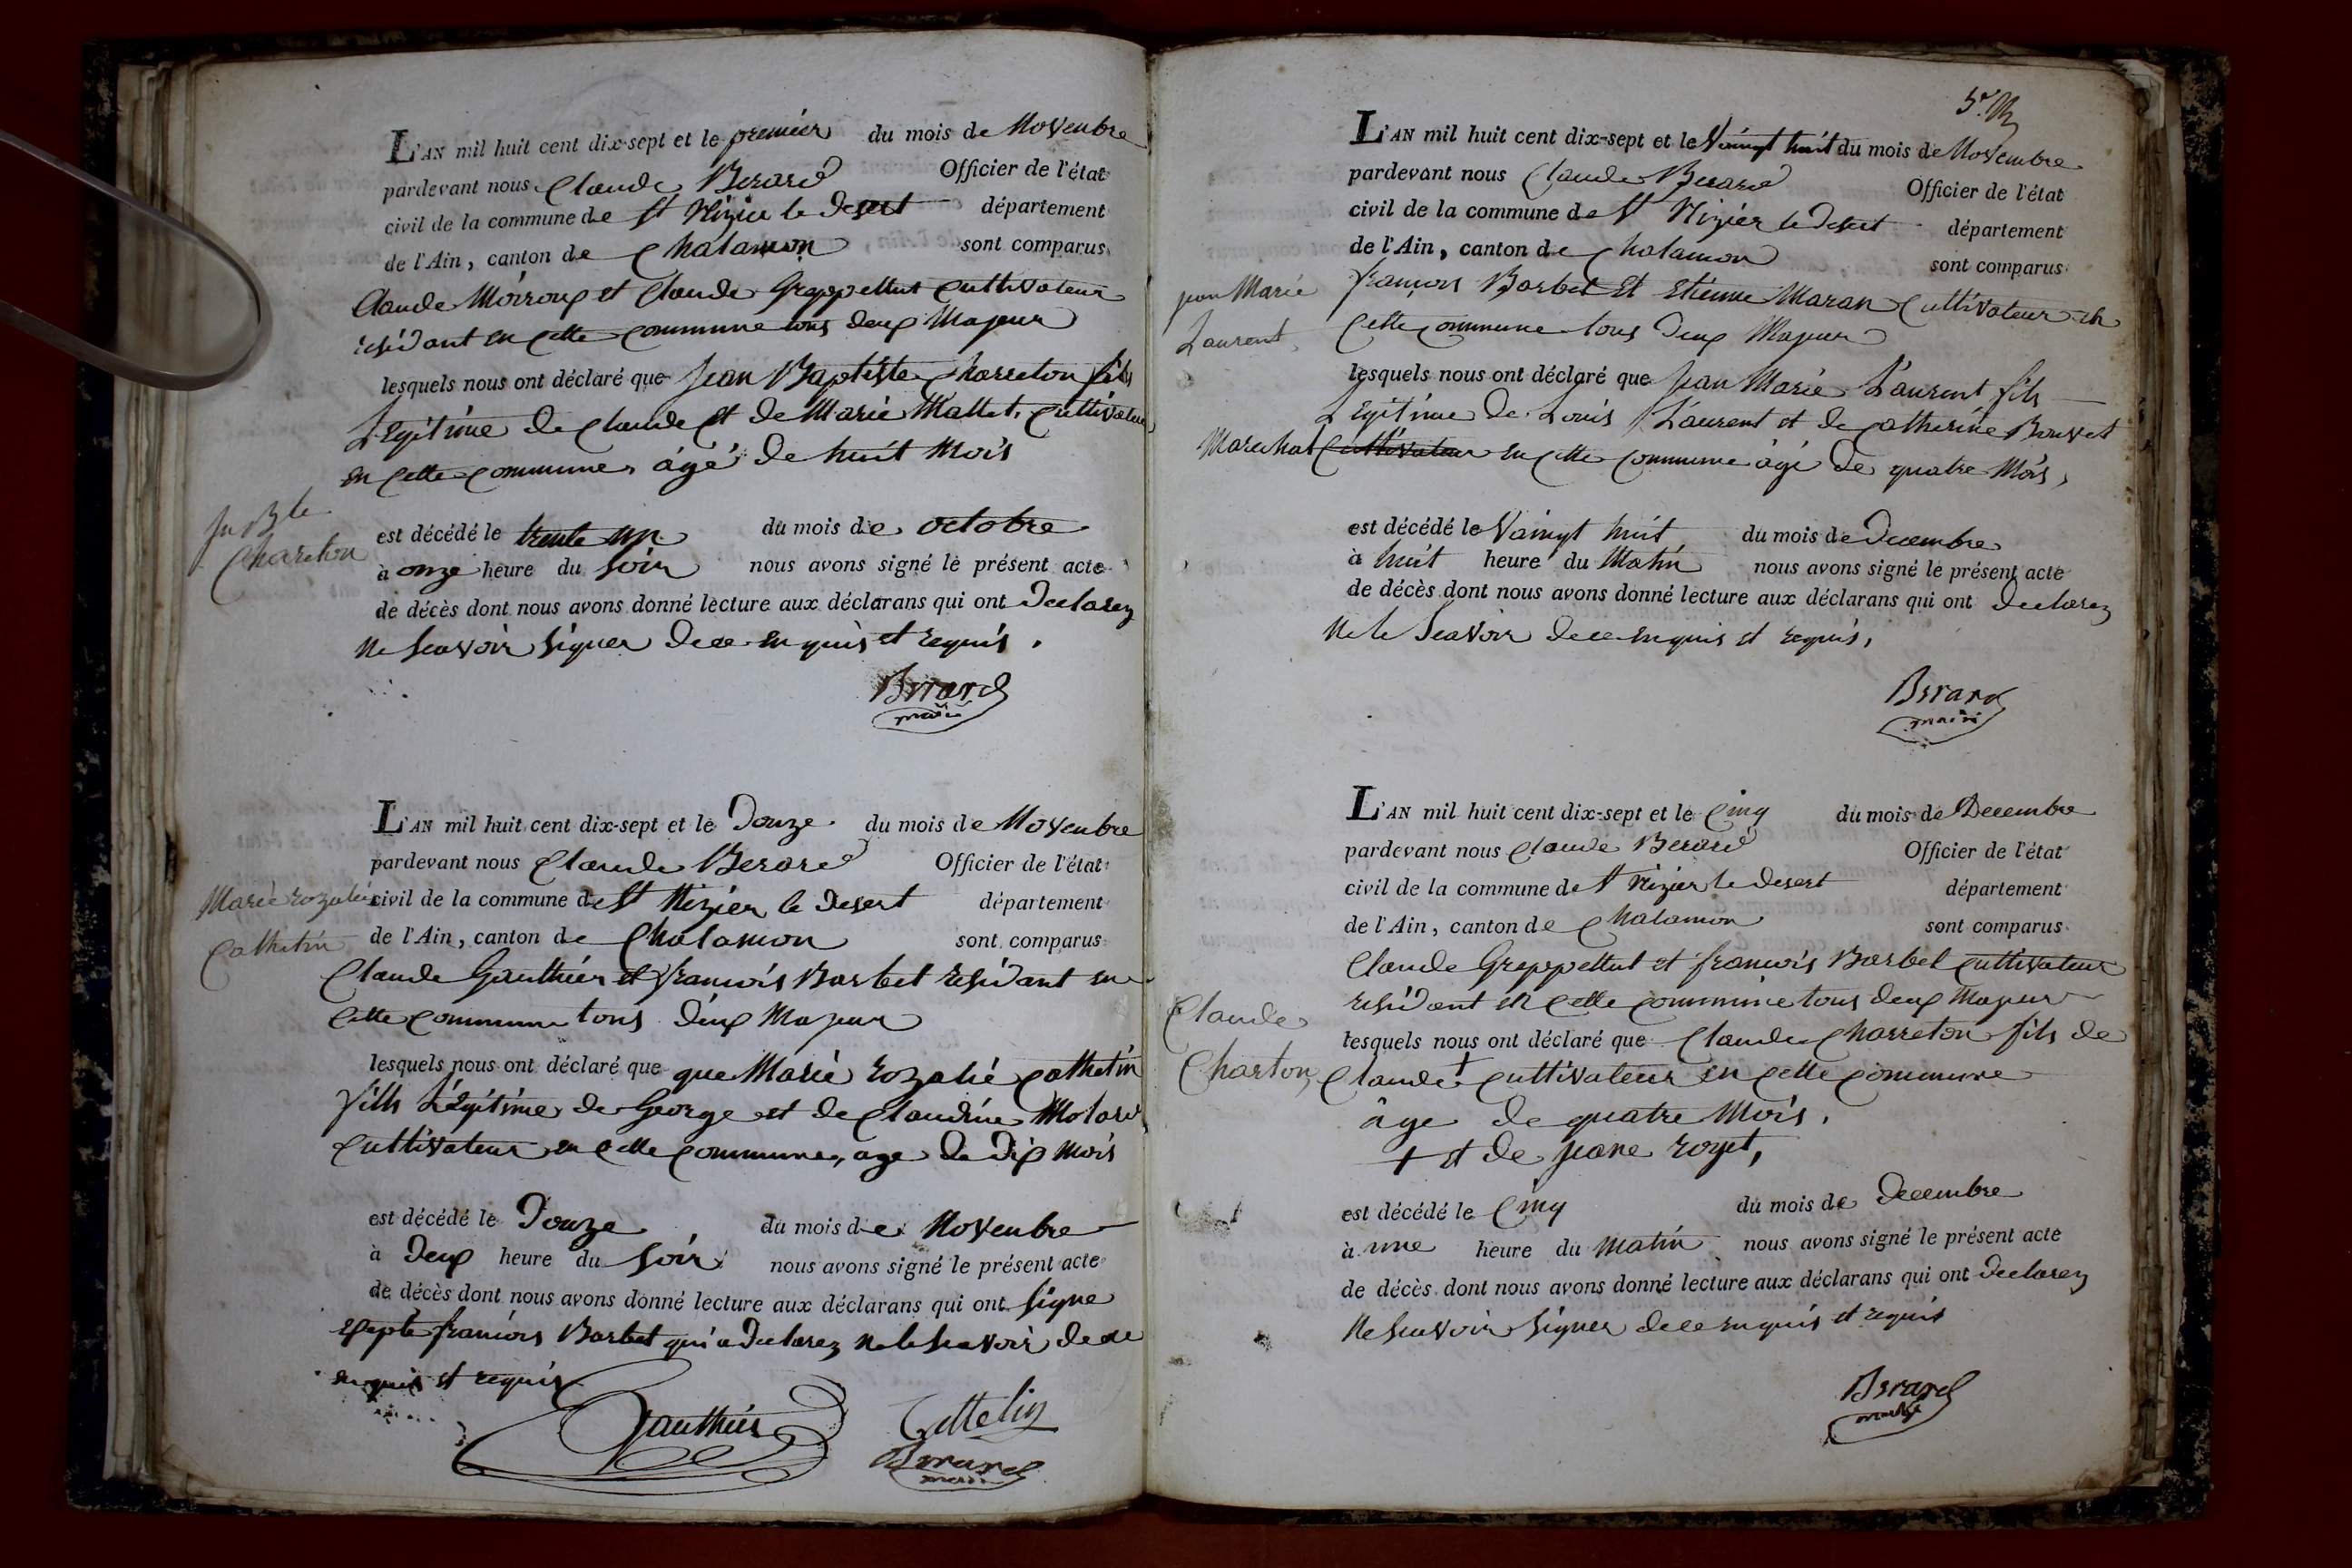 L'AN mil huit cent dix-sept et le premier du mois de Novembre
pardevant nous Claude Berard Officier de l'état
civil de la commune de St Nizier le Desert département
de l'Ain, canton de Chalamon sont comparus
Claude Moiroux et Claude Greppellut Cultivateur
residant en cette commune tous deux Majeur
lesquels nous ont déclaré que Jean Baptiste Charreton fils
Legitime de Claude et de Marie Mallet, Cultivateur
en cette commune, âgé de huit Mois
Jn Bte
Chareton
est décédé le trente un du mois de octobre
à onze heure du soir nous avons signé le présent acte
de décès dont nous avons donné lecture aux déclarans qui ont Declarez
ne Scavoir signer de ce enquis et requis.
Berard
maire
L'AN mil huit cent dix-sept et le Douze du mois de Novembre
pardevant nous Claude Berard Officier de l'état
Marie rozalie
Cathetin
civil de la commune de St Nizier le Desert département
de l'Ain, canton de Chalamon sont comparus
Claude Gauthier et francois Barbet residant en
cette commune tous deux Majeur
lesquels nous ont déclaré que que Marie rozalie Cathetin
fills Légitime de George et de Claudine Molard
Cultivateur en cette commune, age de dix mois
est décédé le Douze du mois de Novembre
à Deux heure du soir nous avons signé le présent acte
de décès dont nous avons donné lecture aux déclarans qui ont signe
Excepte francois Barbet qui a Declarez ne le Scavoir de ce
enquis et requis
Gauthier Cattelin
Berard
maire
5e
L'AN mil huit cent dix-sept et le Vaingt huit du mois de Novembre
pardevant nous Claude Berard Officier de l'état
civil de la commune de St Nizier le Desert département
de l'Ain, canton de Chalamon sont comparus
jean Marie
Laurent
francois Barbet Et Etienne Maran Cultivateur en
cette commune tous deux Majeur
lesquels nous ont déclaré que Jean Marie Laurent fils
Legitime de Louis Laurent et de Catherine Bouvet
Marechal Cultivateur en cette commune âgé de quatre Mois,
est décédé le Vaingt huit du mois de Decembre
à huit heure du Matin nous avons signé le présent acte
de décès dont nous avons donné lecture aux déclarans qui ont declarez
Ne le Scavoir de ce enquis et requis,
Berard
maire
L'AN mil huit cent dix-sept et le Cinq du mois de Decembre
pardevant nous Claude Berard Officier de l'état
civil de la commune de St Nizier le Desert département
de l'Ain, canton de Chalamon sont comparus
Claude Greppellut et francois Barbet Cultivateur
residant en cette commune tous deux Majeur
Claude
Charton
lesquels nous ont déclaré que Claude Charreton fils de
Claude + Cultivateur en cette commune
âge de quatre Mois.
+ et de jane royet,
est décédé le Cinq du mois de Decembre
à une heure du matin nous avons signé le présent acte
de décès dont nous avons donné lecture aux déclarans qui ont Declarez
Ne Scavoir signer de ce enquis et requis
Berard
maire